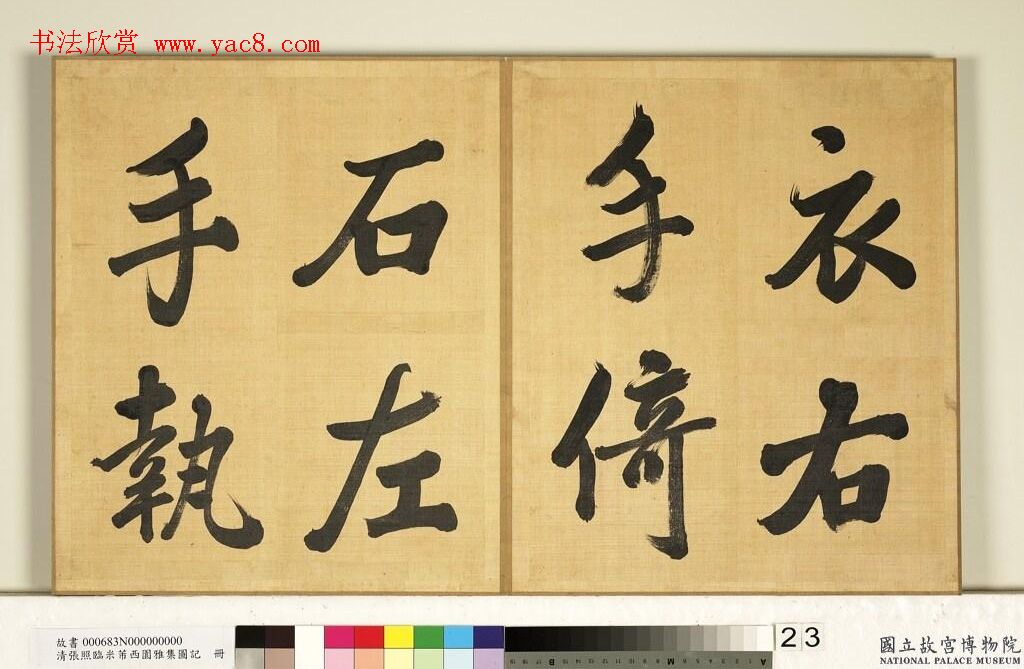 书法欣赏 www.yac8.com
衣右
手倚
石左
手執
故書 000683N000000000
清張照臨米芾西園雅集圖記 冊
23
國立故宮博物院
NATIONAL PALACE MUSEUM